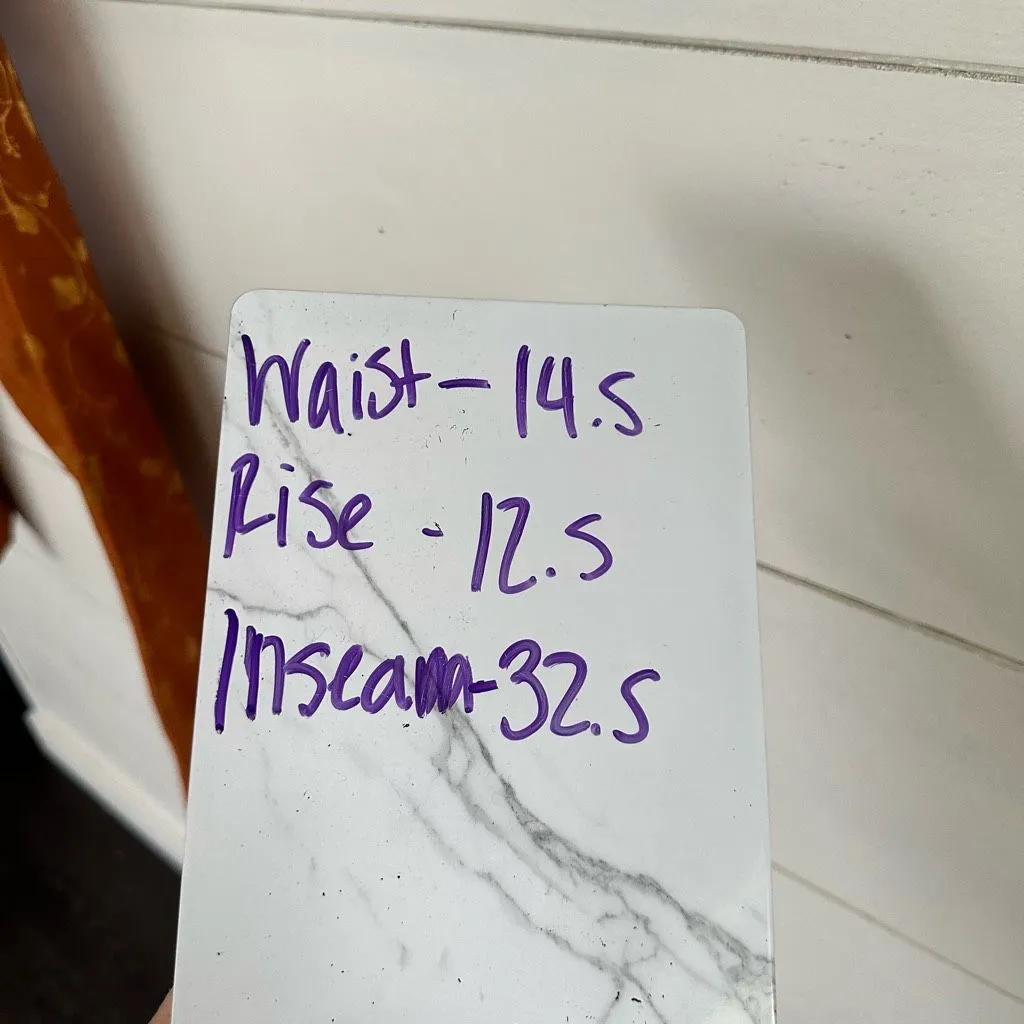 Waist - 14.5
Rise - 12.5
Inseam - 32.5